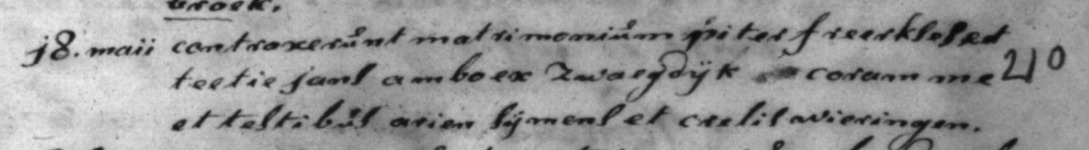 broek.
18. maii contraxerunt matrimonium piter freerkles et
teetie jans ambo ex Zwaegdijk coram me
et testibus arien sijmens et crelis wieringen.